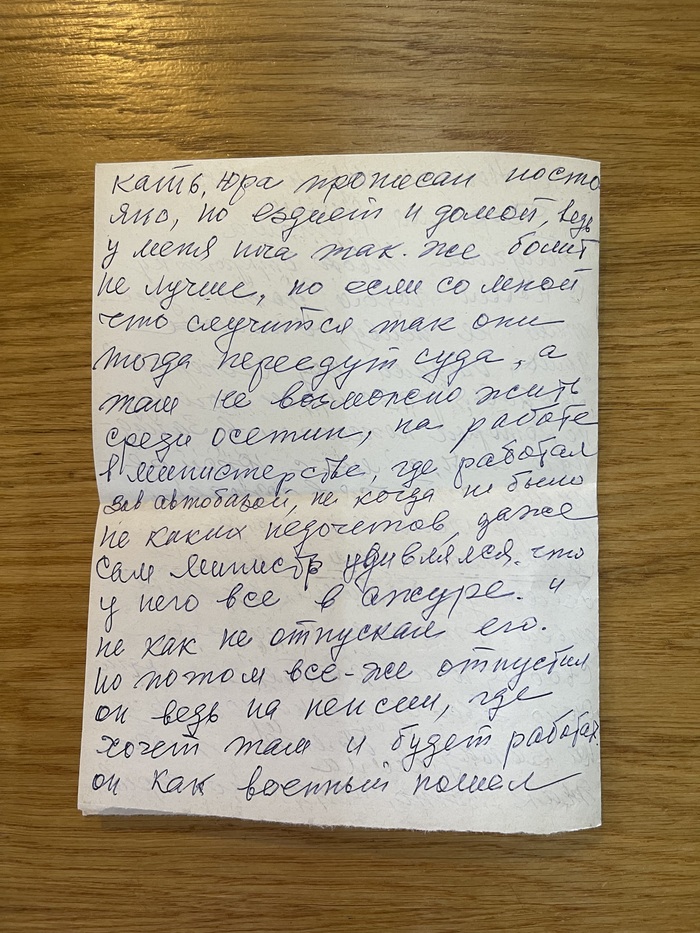 кать, Юра прописан посто
яно, но ездиет и домой, ведь
у меня нога так-же болит
не лучше, но если со мной
что случится так они
тогда переедут суда, а
там не возможно жить
среди осетин, на работе
в министерстве, где работал
зав автобазой, не когда не было
не каких недочетов, даже
сам министр удивлялся, что
у него все в ажуре. и
не как не отпускал его.
но потом все-же отпустил
он ведь на пенсии, где
хочет там и будет работат
он как военный пошел